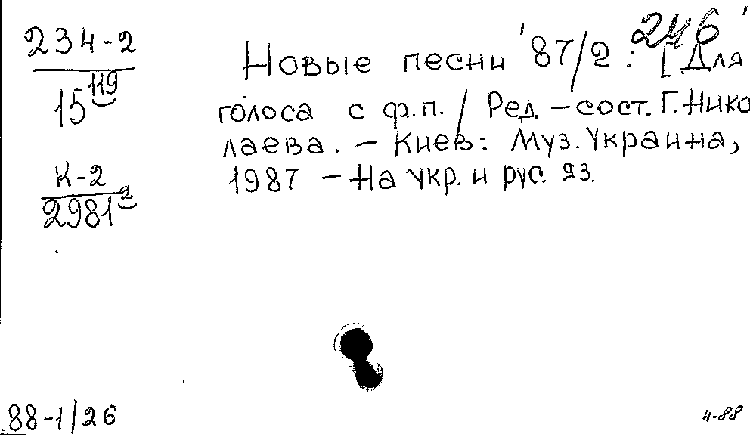 234-2
15 119
К-2
2981 2
246
Новые песни '87/2 : [Для
голоса с ф.п. / Ред.-сост. Г. Нико
лаева. - Киев: Муз. Украина,
1987 - На укр. и рус. яз.
88-1/26
4-88